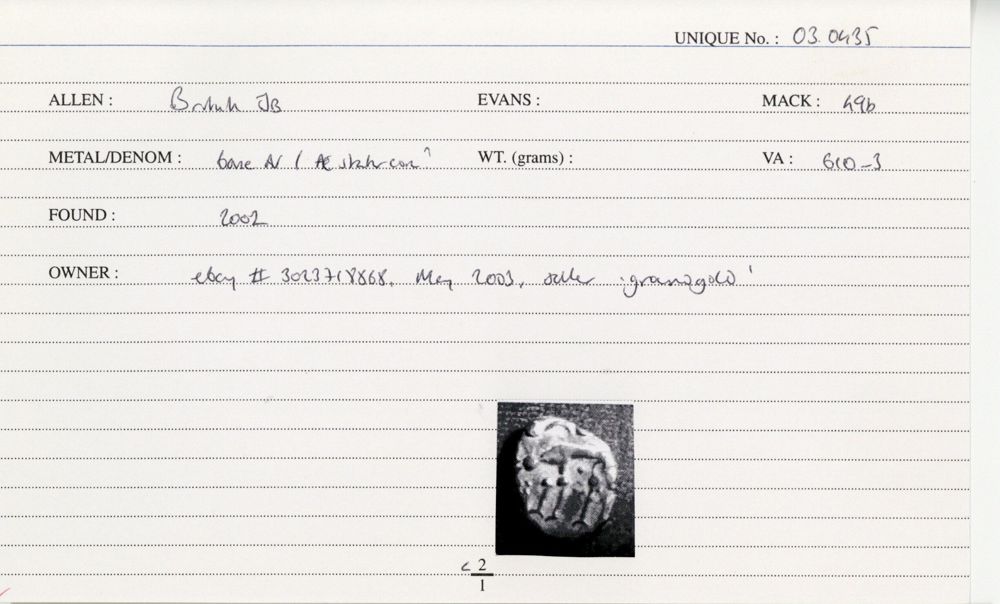 UNIQUE No. : 03.0435
ALLEN : British JB EVANS : MACK : 49b
METAL/DENOM : base AV / Æ stater core? WT. (grams) : VA : 610-3
FOUND : 2002
OWNER : ebay # 3023718868, May 2003, seller 'granagold'
c 2
1